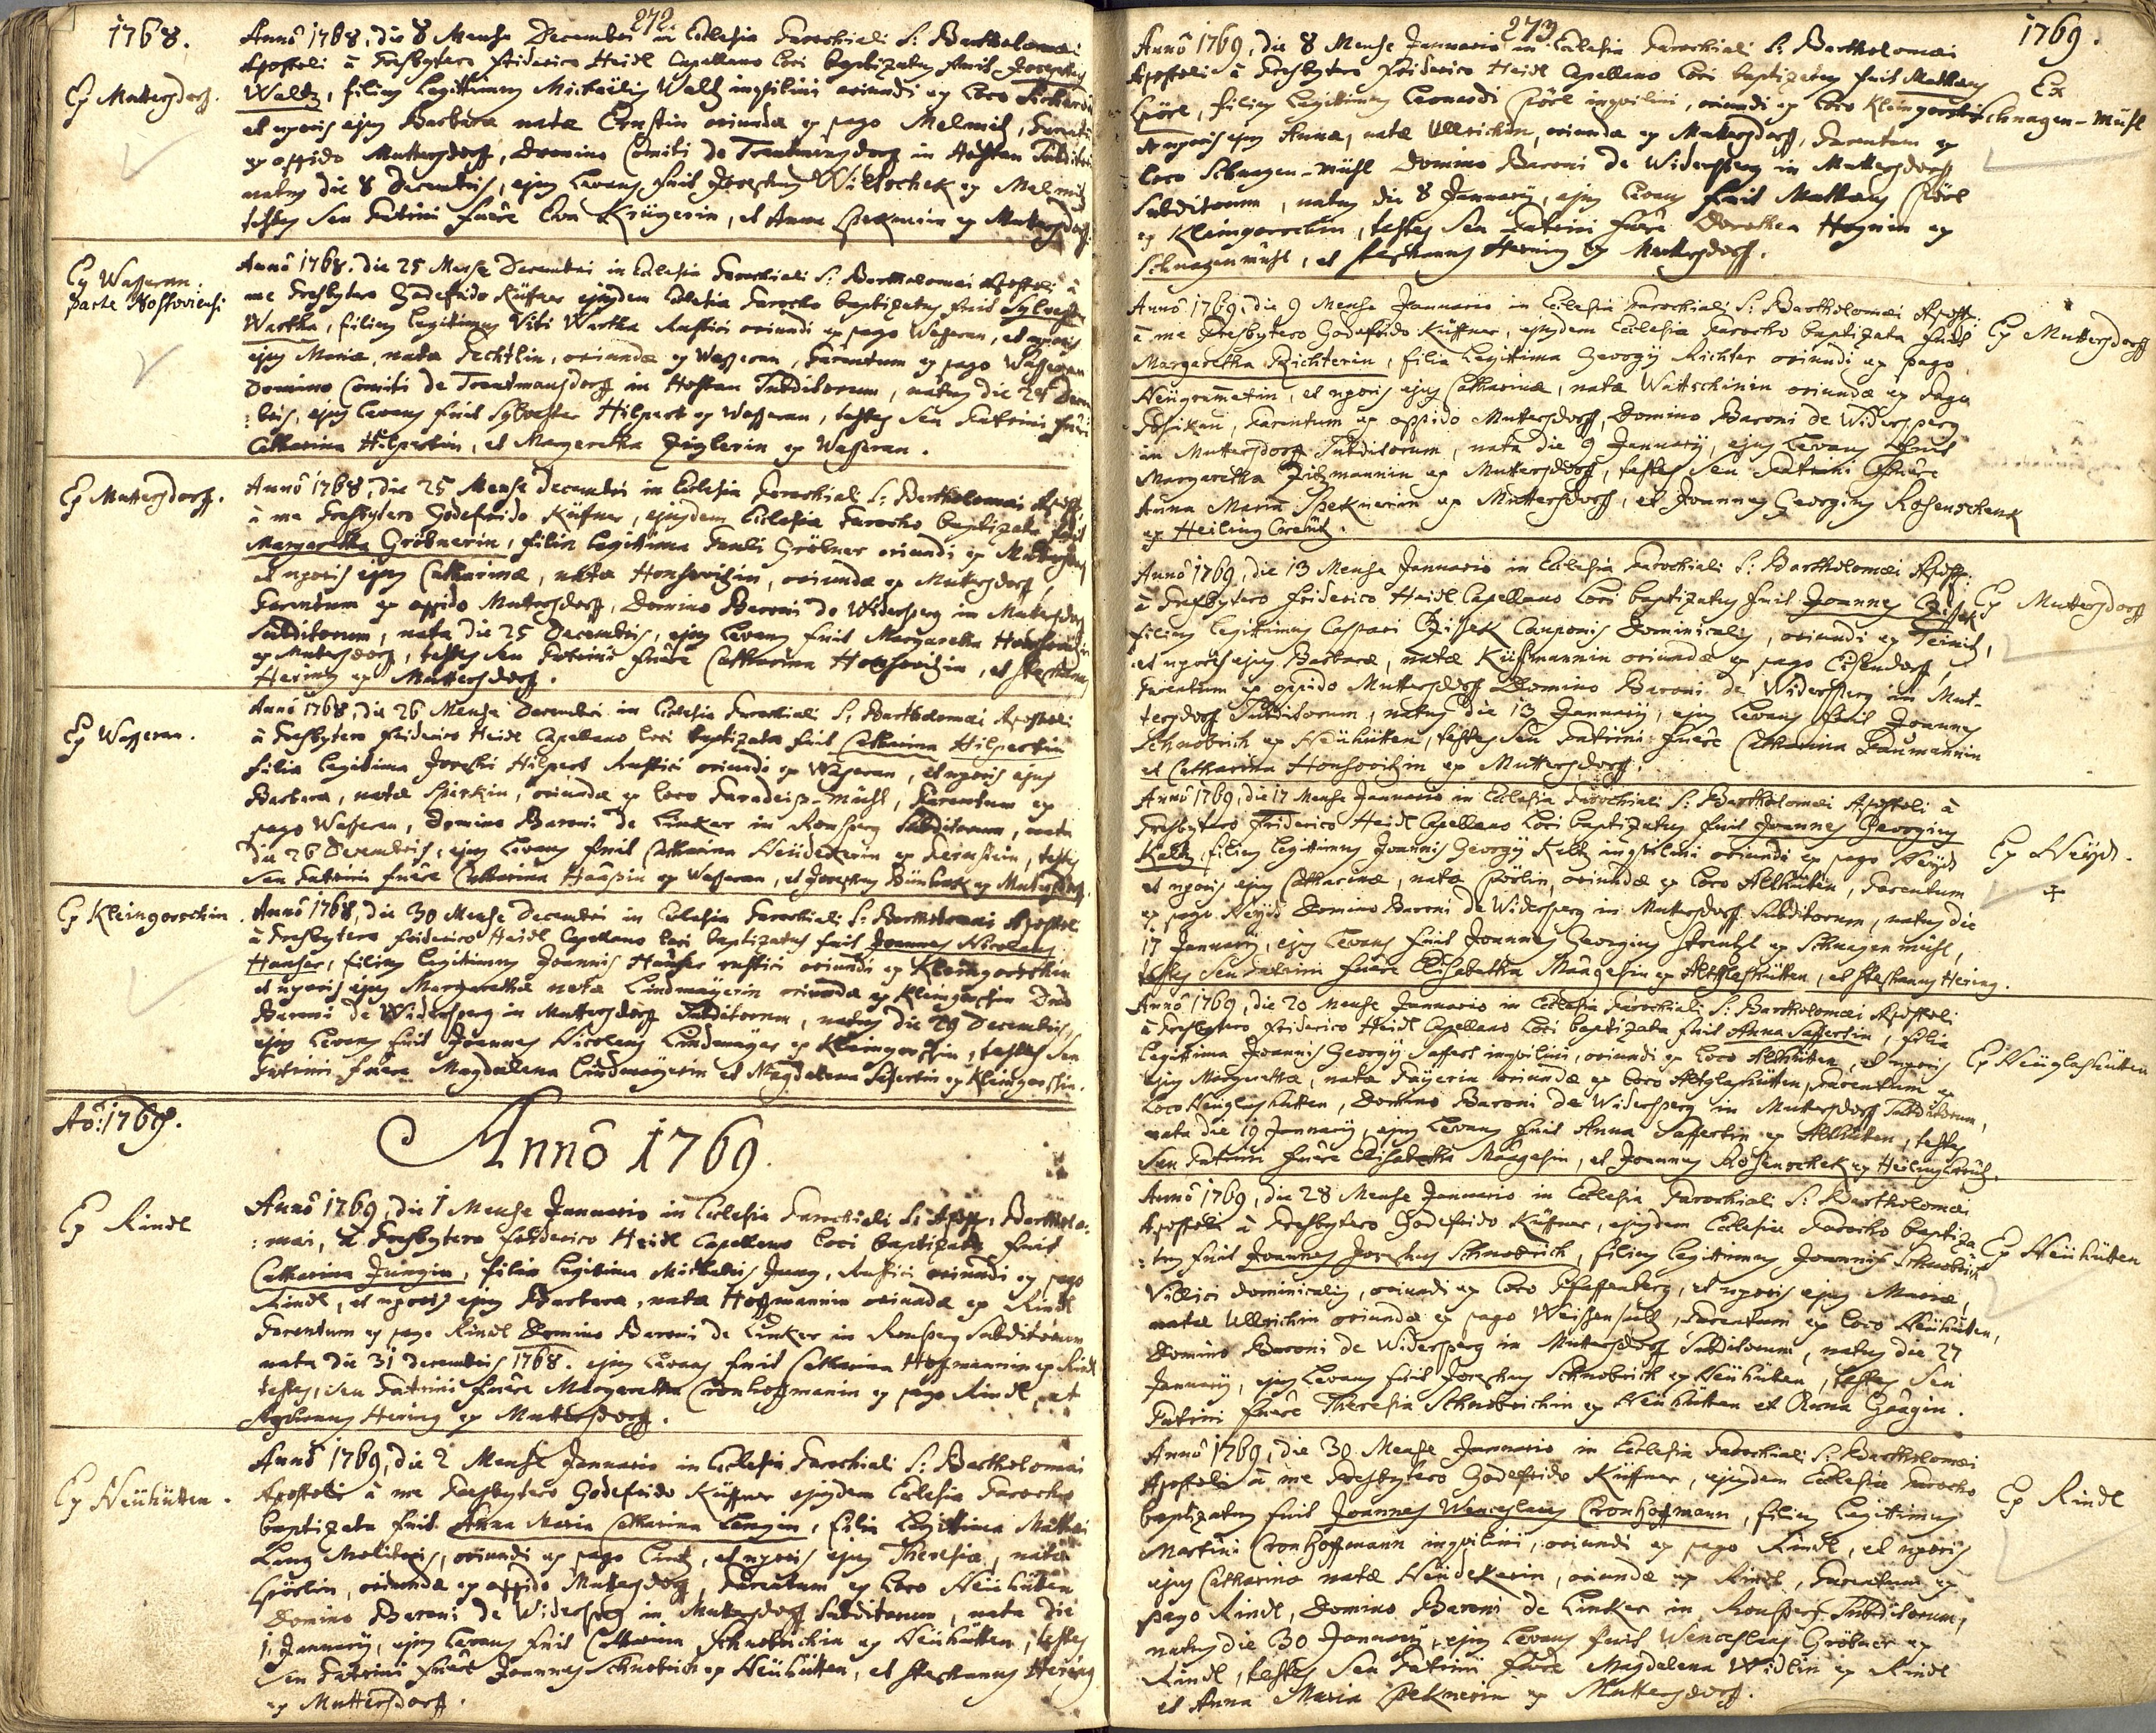 272.
1768.
Ex Muttersdorf.
Anno 1768, die 8 Mense Decembri in Ecclesia Parochiali S: Bartholomæi
Apostoli à Presbytero Friderico Heidl Capellano Loci baptizatus fuit Josephus
Waltz, filius legittimus Michaëlis Waltz inquilini oriundi ex Loco
et uxoris ejus Barbaræ natæ Ernstin oriundæ ex pago Melmitz, Parentum
ex oppido Muttersdorff, Domino Comiti de Trautmansdorf in Hostau Subditorum
natus die 8 Decembris, ejus Levans fuit Josephus Willschek ex Melmitz
testes seu Patrini fuêre Eva Krügerin, et Anna Speknerin ex Muttersdorf.
Ex Wasseran:
parte Hostoviensi
Anno 1768. die 25 Mense Decembri in Ecclesia Parochiali S: Bartholomæi Apostoli à
me Presbytero Godefrido Küffner ejusdem Ecclesiæ Parocho baptizatus fuit Sylvester
Wartha, filius legitimus Viti Wartha Rustici oriundi ex pago Wasseran, et uxoris
ejus Mariæ, natæ Pechtlin, oriundæ ex Wasseran, Parentum ex pago Wasseran
Domino Comiti de Trautmansdorff in Hostau Subditorum, natus die 25 Decem
:bris, ejus Levans fuit Sylvester Hilpert ex Wasseran, testes seu Patrini fuêre
Catharina Hilpertin, et Margaretha Zieglerin ex Wasseran.
Ex Muttersdorff.
Anno 1768, die 25 Mense Decembri in Ecclesia Parochiali S: Bartholomæi Apost:
à me Presbytero Godefrido Küffner, ejusdem Ecclesiæ Parocho baptizata fuit
Margaretha Gröbnerin, filia legittima Pauli Gröbner oriundi ex Muttersdorf
et uxoris ejus Catharinæ, natæ Honsovitzin, oriundæ ex Muttersdorff,
Parentum ex oppido Muttersdorff, Domino Baroni de Widersperg in Muttersdorf
Subditorum, nata die 25 Decembris, ejus Levans fuit Margaretha Honsovitzin
ex Muttersdorf, testes seu Patrini fuêre Catharina Honsovitzin, et Stephanus
Hering ex Muttersdorf.
Ex Wasseran.
Anno 1768, die 26 Mense Decembri in Ecclesia Parochiali S: Bartholomæi Apostoli
à Presbytero Friderico Heidl Capellano loci baptizata fuit Catharina Hilpertin
filia legitima Josephi Hilpert Rustici oriundi ex Wasseran, et uxoris ejus
Barbaræ, natæ Spirkin, oriundæ ex loco Paradeis-Mühl, Parentum ex
pago Wasseran, Domino Baroni de Linker in Ronsperg Subditorum, nata
die 26 Decembris, ejus Levans fuit Catharina Neüdekerin ex Pernstein, testes
seu Patrini fuêre Catharina Haasin ex Wasseran, et Josephus ex Muttersdorf.
Ex Kleingorschin.
Anno 1768, die 30 Mense Decembri in Ecclesia Parochiali S: Bartholomæi Apostoli
à Presbytero Friderico Heidl Capellano loci baptizatus fuit Joannes Nicolaus
Hauser, filius legitimus Joannis Hauser rustici oriundi ex Kleingorschin
et uxoris ejus Margarethæ natæ Lindmayerin oriundæ ex Kleingorschin Dno
Baroni de Widersperg in Muttersdorf Subditorum, natus die 29 Decembris,
ejus Levans fuit Joannes Nicolaus Lindmayer ex Kleingorschin, testes seu
Patrini fuêre Magdalena Lindmayerin et Magdalena Sassertin ex Kleingorschin.
Ao: 1769.
Anno 1769.
Ex Rindl
Anno 1769, die 1 Mense Januario in Ecclesia Parochiali S: Apost: Bartholo-
:mæi, à Presbytero Friderico Heidl Capellano loci baptizata fuit
Catharina Jungin, filia legitima Michaëlis Jung, Rustici oriundi ex pago
Rindl, et uxoris ejus Barbaræ, natæ Hoffmannin oriundæ ex Rindl
Parentum ex pago Rindl Domino Baroni de Linker in Ronsperg Subditorum
nata die 31 Decembris 1768. ejus Levans fuit Catharina Hoffmannin ex Rindl
testes, seu Patrini fuêre Margaretha Cronhoffmanin ex pago Rindl, et
Stephanus Hering ex Muttersdorff.
Ex Neühütten.
Anno 1769, die 2 Mense Januario in Ecclesia Parochiali S: Bartholomæi
Apostoli à me Presbytero Godefrido Küffner ejusdem Ecclesiæ Parocho
baptizata fuit Anna Maria Catharina Langin, filia Legittima Mathæi
Lang Molitoris, oriundi ex pago Linz, et uxoris ejus Theresiæ, natæ
Spörlin, oriundæ ex oppido Muttersdorf, Parentum ex Loco Neühütten
Domino Baroni de Widersperg in Muttersdorff Subditorum, nata die
1. Januarij, ejus Levans fuit Catharina Schnobrichin ex Neühütten, testes
seu Patrini fuêre Joannes Schnobrich ex Neühütten, et Stephanus Hering
ex Muttersdorff.
273
1769.
Ex
Schnagen-Mühl
Anno 1769, die 8 Mense Januario in Ecclesia Parochiali S: Bartholomæi
Apostoli à Presbytero Friderico Heidl Capellano Loci baptizatus fuit Mathæus
Spörl, filius Legittimus Leonardi Spörl inquilini, oriundi ex loco Kleingorschin
et uxoris ejus Annæ, natæ Ullrichin, oriundæ ex Muttersdorff, Parentum ex
loco Schnagen-Mühl Domino Baroni de Widersperg in Muttersdorff
Subditorum, natus die 8 Januarij, ejus Levans fuit Mathæus Spörl
ex Kleingorschin, testes seu Patrini fuêre Dorothea ex
Schnagenmühl, et Stephanus Hering ex Muttersdorff.
Ex Muttersdorff
Anno 1769, die 9 Mense Januario in Ecclesia Parochiali S: Bartholomæi Apost:
à me Presbytero Godefrido Küffner, ejusdem Ecclesiæ Parocho baptizata fuit
Margaretha Richterin, filia Legittima Georgij Richter oriundi ex pago
Neügramatin, et uxoris ejus Catharinæ, natæ Wattschinin oriundæ ex Pago
Parentum ex oppido Muttersdorff, Domino Baroni de Widersperg
in Muttersdorff Subditorum, nata die 9 Januarij, ejus Levans fuit
Margaretha Fritzmannin ex Muttersdorff, testes seu Patrini fuêre
Anna Maria Speknerin ex Muttersdorff, et Joannes Georgius Rosenschenk
ex Heiling Creütz.
Ex Muttersdorff
Anno 1769, die 13 Mense Januario in Ecclesia Parochiali S: Bartholomæi Apost:
à Presbytero Friderico Heidl Capellano Loci baptizatus fuit Joannes Czissek
filius Legittimus Caspari Czissek Cauponis Dominicalis, oriundi ex Teinitz,
et uxoris ejus Barbaræ, natæ Küssmannin oriundæ ex pago Eisendorff
Parentum ex oppido Muttersdorff Domino Baroni de Widersperg in Mut-
tersdorff Subditorum, natus die 13 Januarij, ejus Levans fuit Joannes
Schnobrich ex Neühütten, testes seu Patrini fuêre Catharina Baumannin
et Catharina Honsovitzin ex Muttersdorff.
Ex Neÿd.
Anno 1769, die 17 Mense Januario in Ecclesia Parochiali S: Bartholomæi Apostoli à
Presbytero Friderico Heidl Capellano Loci baptizatus fuit Joannes Georgius
Keltz, filius Legittimus Joannis Georgij Keltz inquilini oriundi ex pago Neÿd
et uxoris ejus Catharinæ, natæ Spörlin, oriundæ ex loco Althütten, Parentum
ex pago Neÿd Domino Baroni de Widersperg in Muttersdorff Subditorum, natus die
17 Januarij, ejus Levans fuit Joannes Georgius ex Schnagenmühl,
testes seu Patrini fuêre Elisabetha Maagesin ex Altglashütten, et Stephanus Hering.
Ex Neüglashütten
Anno 1769, die 20 Mense Januario in Ecclesia Parochiali S: Bartholomæi Apostoli
à Presbytero Friderico Heidl Capellano Loci baptizata fuit Anna Sassertin, filia
Legittima Joannis Georgij Sassert inquilini, oriundi ex loco Althütten, et uxoris
ejus Margarethæ, natæ oriundæ ex loco Altglashütten, Parentum ex
Loco Neüglashütten, Domino Baroni de Widersperg in Muttersdorff Subditorum,
nata die 19 Januarij, ejus Levans fuit Anna Sassertin ex Althütten, testes
seu Patrini fuêre Elisabetha Maagesin, et Joannes ex Heiling Creütz.
Ex Neühütten
Anno 1769, die 28 Mense Januario in Ecclesia Parochiali S: Bartholomæi
Apostoli à Presbytero Godefrido Küffner, ejusdem Ecclesiæ Parocho baptiza
:tus fuit Joannes Josephus Schnobrich, filius Legittimus Joannis Schnobrich
Villici dominicalis, oriundi ex Loco Pfaffenberg, et uxoris ejus Mariæ,
natæ Ullrichin oriundæ ex pago Weissensultz, Parentum ex loco Neühütten,
Domino Baroni de Widersperg in Muttersdorff Subditorum, natus die 27
Januarij, ejus Levans fuit Josephus Schnobrich ex Neühütten, testes seu
Patrini fuêre Theresia Schnobrichin ex Neühütten et Anna Gaagin.
Ex Rindl
Anno 1769, die 30 Mense Januario in Ecclesia Parochiali S: Bartholomæi
Apostoli à me Presbytero Godefrido Küffner, ejusdem Ecclesiæ Parocho
baptizatus fuit Joannes Wenceslaus Cronhoffmann, filius Legitimus
Martini Cronhoffmann inquilini, oriundi ex pago Rindl, et uxoris
ejus Catharinæ natæ Neüdekerin, oriundæ ex Rindl, Parentum ex
pago Rindl, Domino Baroni de Linker in Ronsperg Subditorum,
natus die 30 Januarij, ejus Levans fuit Wenceslaus Gröbner ex
Rindl, testes seu Patrini fuêre Magdalena Widlin ex Rindl
et Anna Maria Speknerin ex Muttersdorff.